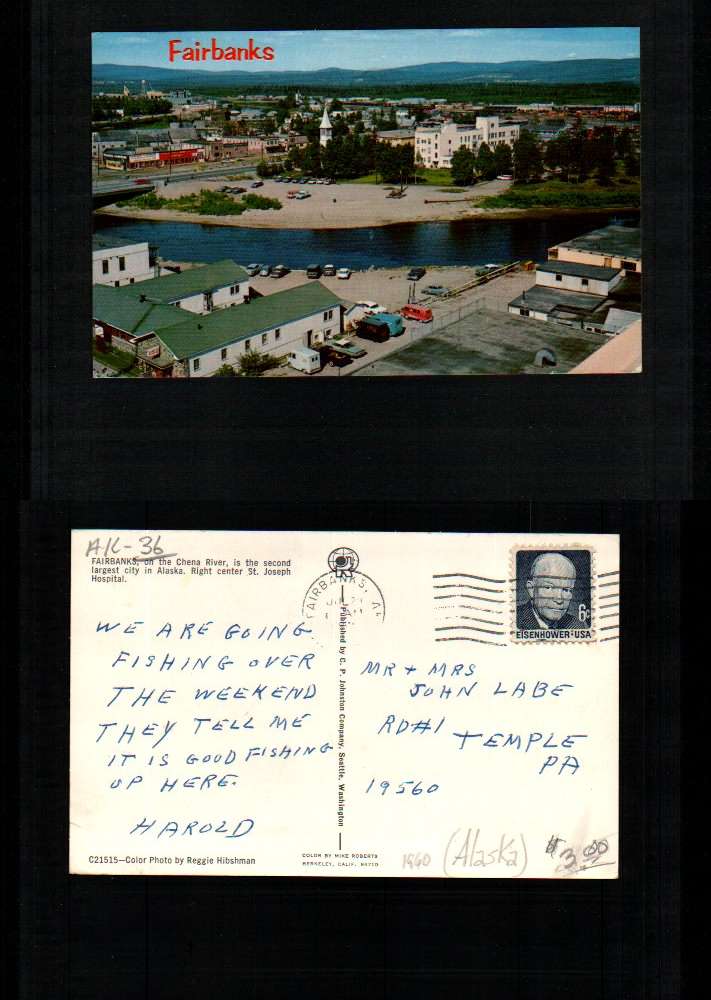 Fairbanks
AK-36
FAIRBANKS, on the Chena River, is the second
largest city in Alaska. Right center St. Joseph
Hospital.
WE ARE GOING
FISHING OVER
THE WEEKEND
THEY TELL ME
IT IS GOOD FISHING
UP HERE.
HAROLD
C21515—Color Photo by Reggie Hibshman
Published by C. P. Johnston Company, Seattle, Washington
COLOR BY MIKE ROBERTS
BERKELEY, CALIF. 94710
FAIRBANKS, AK
6c
EISENHOWER·USA
MR + MRS
JOHN LABE
RD#1
TEMPLE
PA
19560
1960
(Alaska)
$3.00